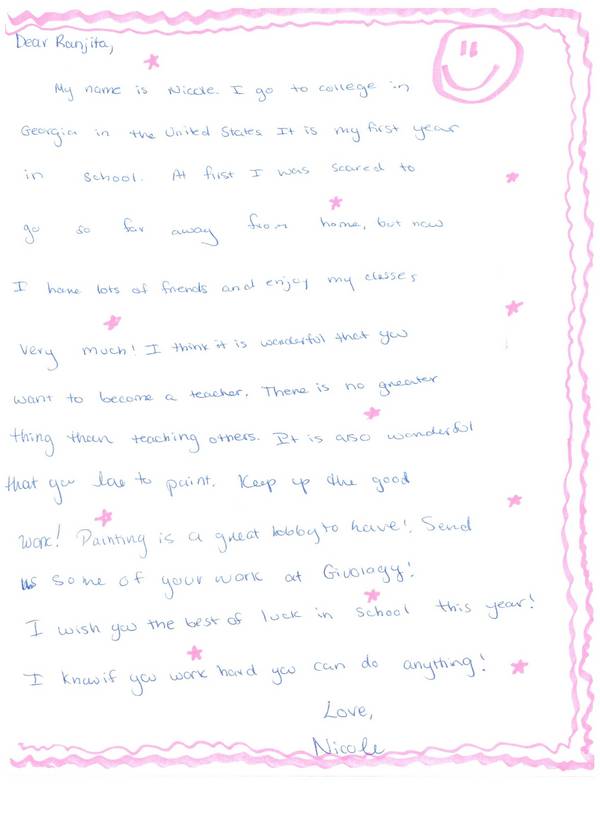 Dear Ranjita,
My name is Nicole. I go to college in
Georgia in the United States. It is my first year
in school. At first I was scared to
go so far away from home, but now
I have lots of friends and enjoy my classes
very much! I think it is wonderful that you
want to become a teacher. There is no greater
thing than teaching others. It is also wonderful
that you love to paint. Keep up the good
work! Painting is a great hobby to have! Send
us some of your work at Givology!
I wish you the best of luck in school this year!
I know if you work hard you can do anything!
Love,
Nicole